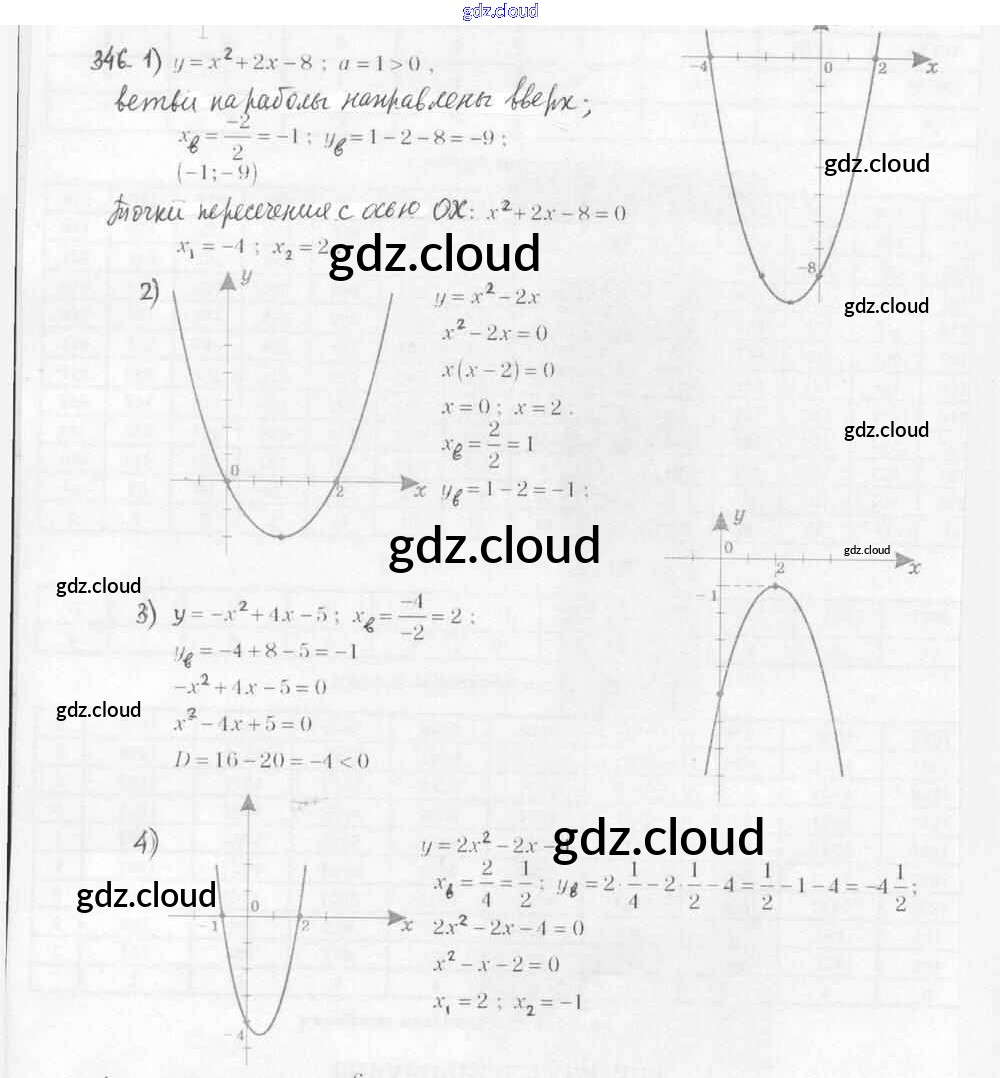 gdz.cloud
346. 1) y = x² + 2x − 8 ; a = 1 > 0 ,
ветви параболы направлены вверх;
x_в = −2/2 = −1 ; y_в = 1 − 2 − 8 = −9 ;
(−1; −9)
Точки пересечения с осью OX: x² + 2x − 8 = 0
x₁ = −4 ; x₂ = 2
gdz.cloud
−4 0 2 x
gdz.cloud
−8
gdz.cloud
2) y
0 2 x
y = x² − 2x
x² − 2x = 0
x(x − 2) = 0
x = 0 ; x = 2 .
x_в = 2/2 = 1
y_в = 1 − 2 = −1 ;
gdz.cloud
gdz.cloud
gdz.cloud
3) y = −x² + 4x − 5 ; x_в = −4/−2 = 2 ;
y_в = −4 + 8 − 5 = −1
−x² + 4x − 5 = 0
x² − 4x + 5 = 0
D = 16 − 20 = −4 < 0
gdz.cloud
y
0 gdz.cloud
2 x
−1
4)
gdz.cloud
0
−1 2 x
−4
y = 2x² − 2x −
gdz.cloud
x_в = 2/4 = 1/2 ; y_в = 2 · 1/4 − 2 · 1/2 − 4 = 1/2 − 1 − 4 = −4 1/2 ;
2x² − 2x − 4 = 0
x² − x − 2 = 0
x₁ = 2 ; x₂ = −1